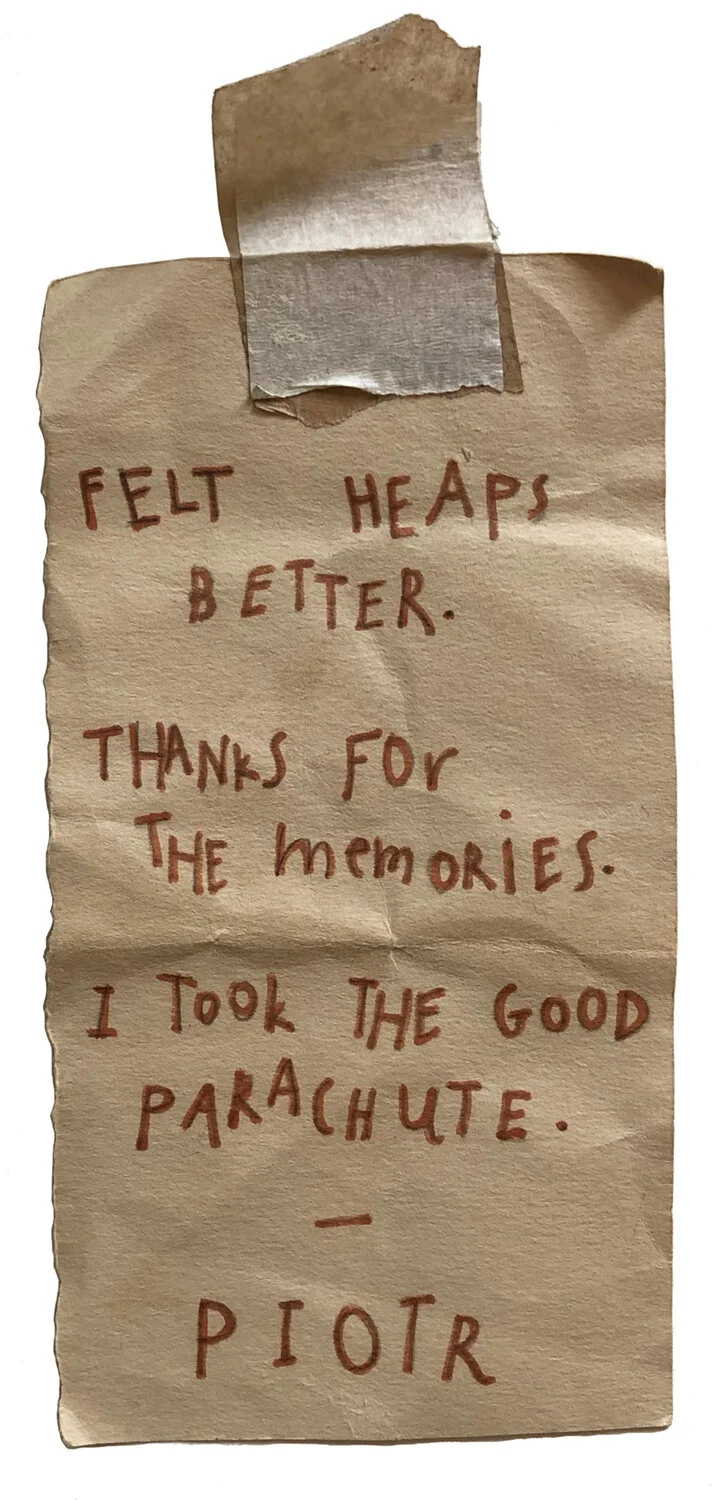 FELT HEAPS
BETTER.
THANKS FOr
THE memORiES.
I TooK THE GOOD
PARACHUTE.
—
PIOTR